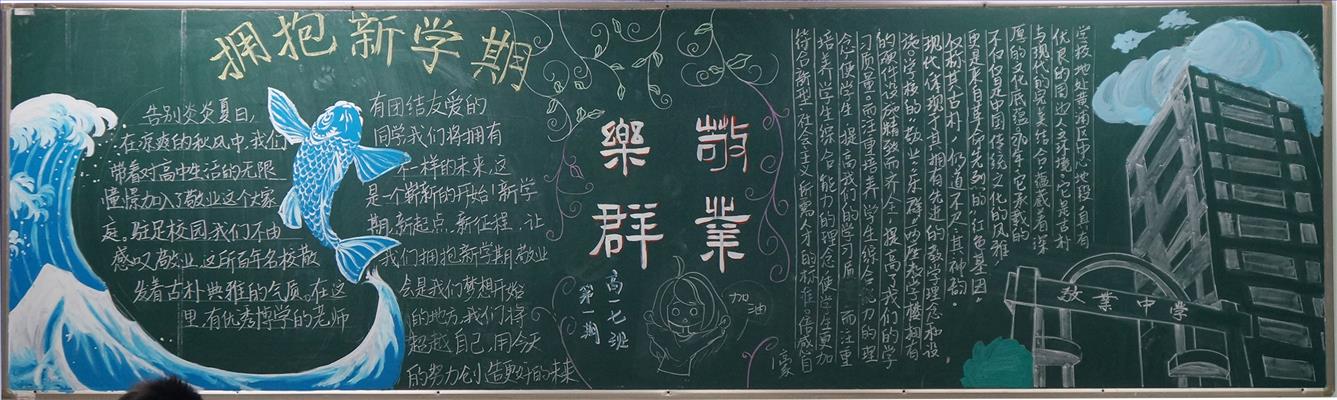 拥抱新学期
告别炎炎夏日,
在凉爽的秋风中,我们
带着对高中生活的无限
憧憬加入了敬业这个大家
庭。驻足校园我们不由
感叹敬业,这所百年名校散
发着古朴典雅的气质。在这
里,有优秀博学的老师
有团结友爱的
同学我们将拥有
不一样的未来,这
是一个崭新的开始!新学
期,新起点,新征程,让
我们拥抱新学期敬业
会是我们梦想开始
的地方,我们将
超越自己,用今天
的努力创造更好的未来
敬業
樂群
高一七班
第一期
加油
学校地处黄浦区中心地段,具有
优良的周边人文环境。它是古朴
与现代的完美结合,蕴藏着深
厚的文化底蕴,它承载的
不仅仅是中国传统文化的风雅
更是来自革命先烈的“红色基因”。
仅称其古朴,仍道不尽其神韵
现代体现于其拥有先进的教学理念和设
施,学校的“敬业”“乐群”两座教学楼拥有
的硬件设施精致而齐全,提高了我们的学
习质量。而注重培养学生综合能力的理
念使学生 提高我们的学习质 而注重
培养学生综合能力的理念使学生更加
符合新型社会主义所需人才的标准。倍感自
豪
敬業中学